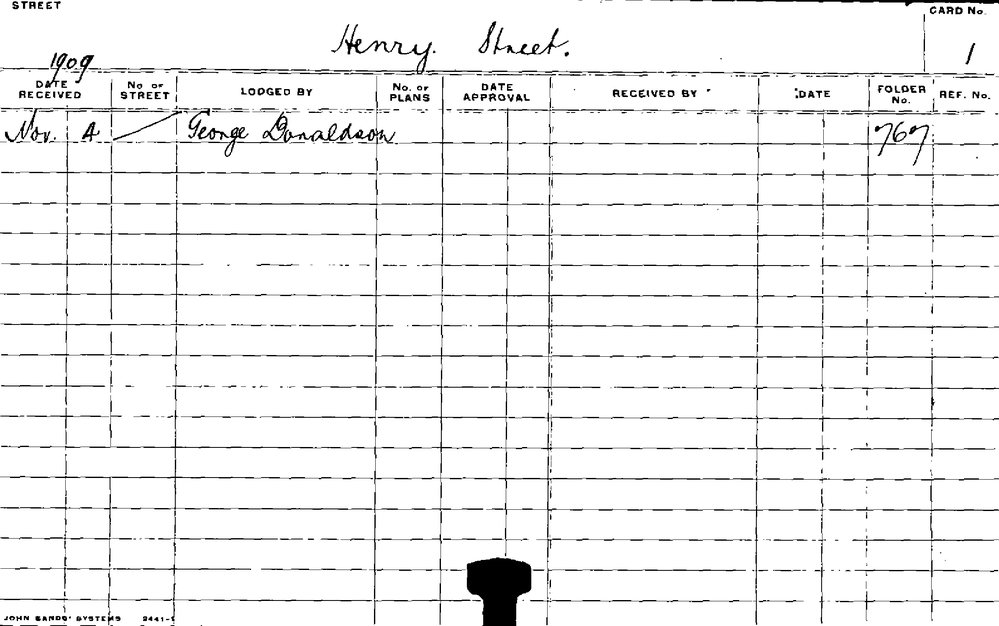 STREET
CARD No.
Henry. Street.
1
1909
DATE RECEIVED No of STREET LODGED BY No. of PLANS DATE APPROVAL RECEIVED BY DATE FOLDER No. REF. No.
Nov. 4 George Donaldson 767
JOHN SANDS' SYSTEMS 2441-